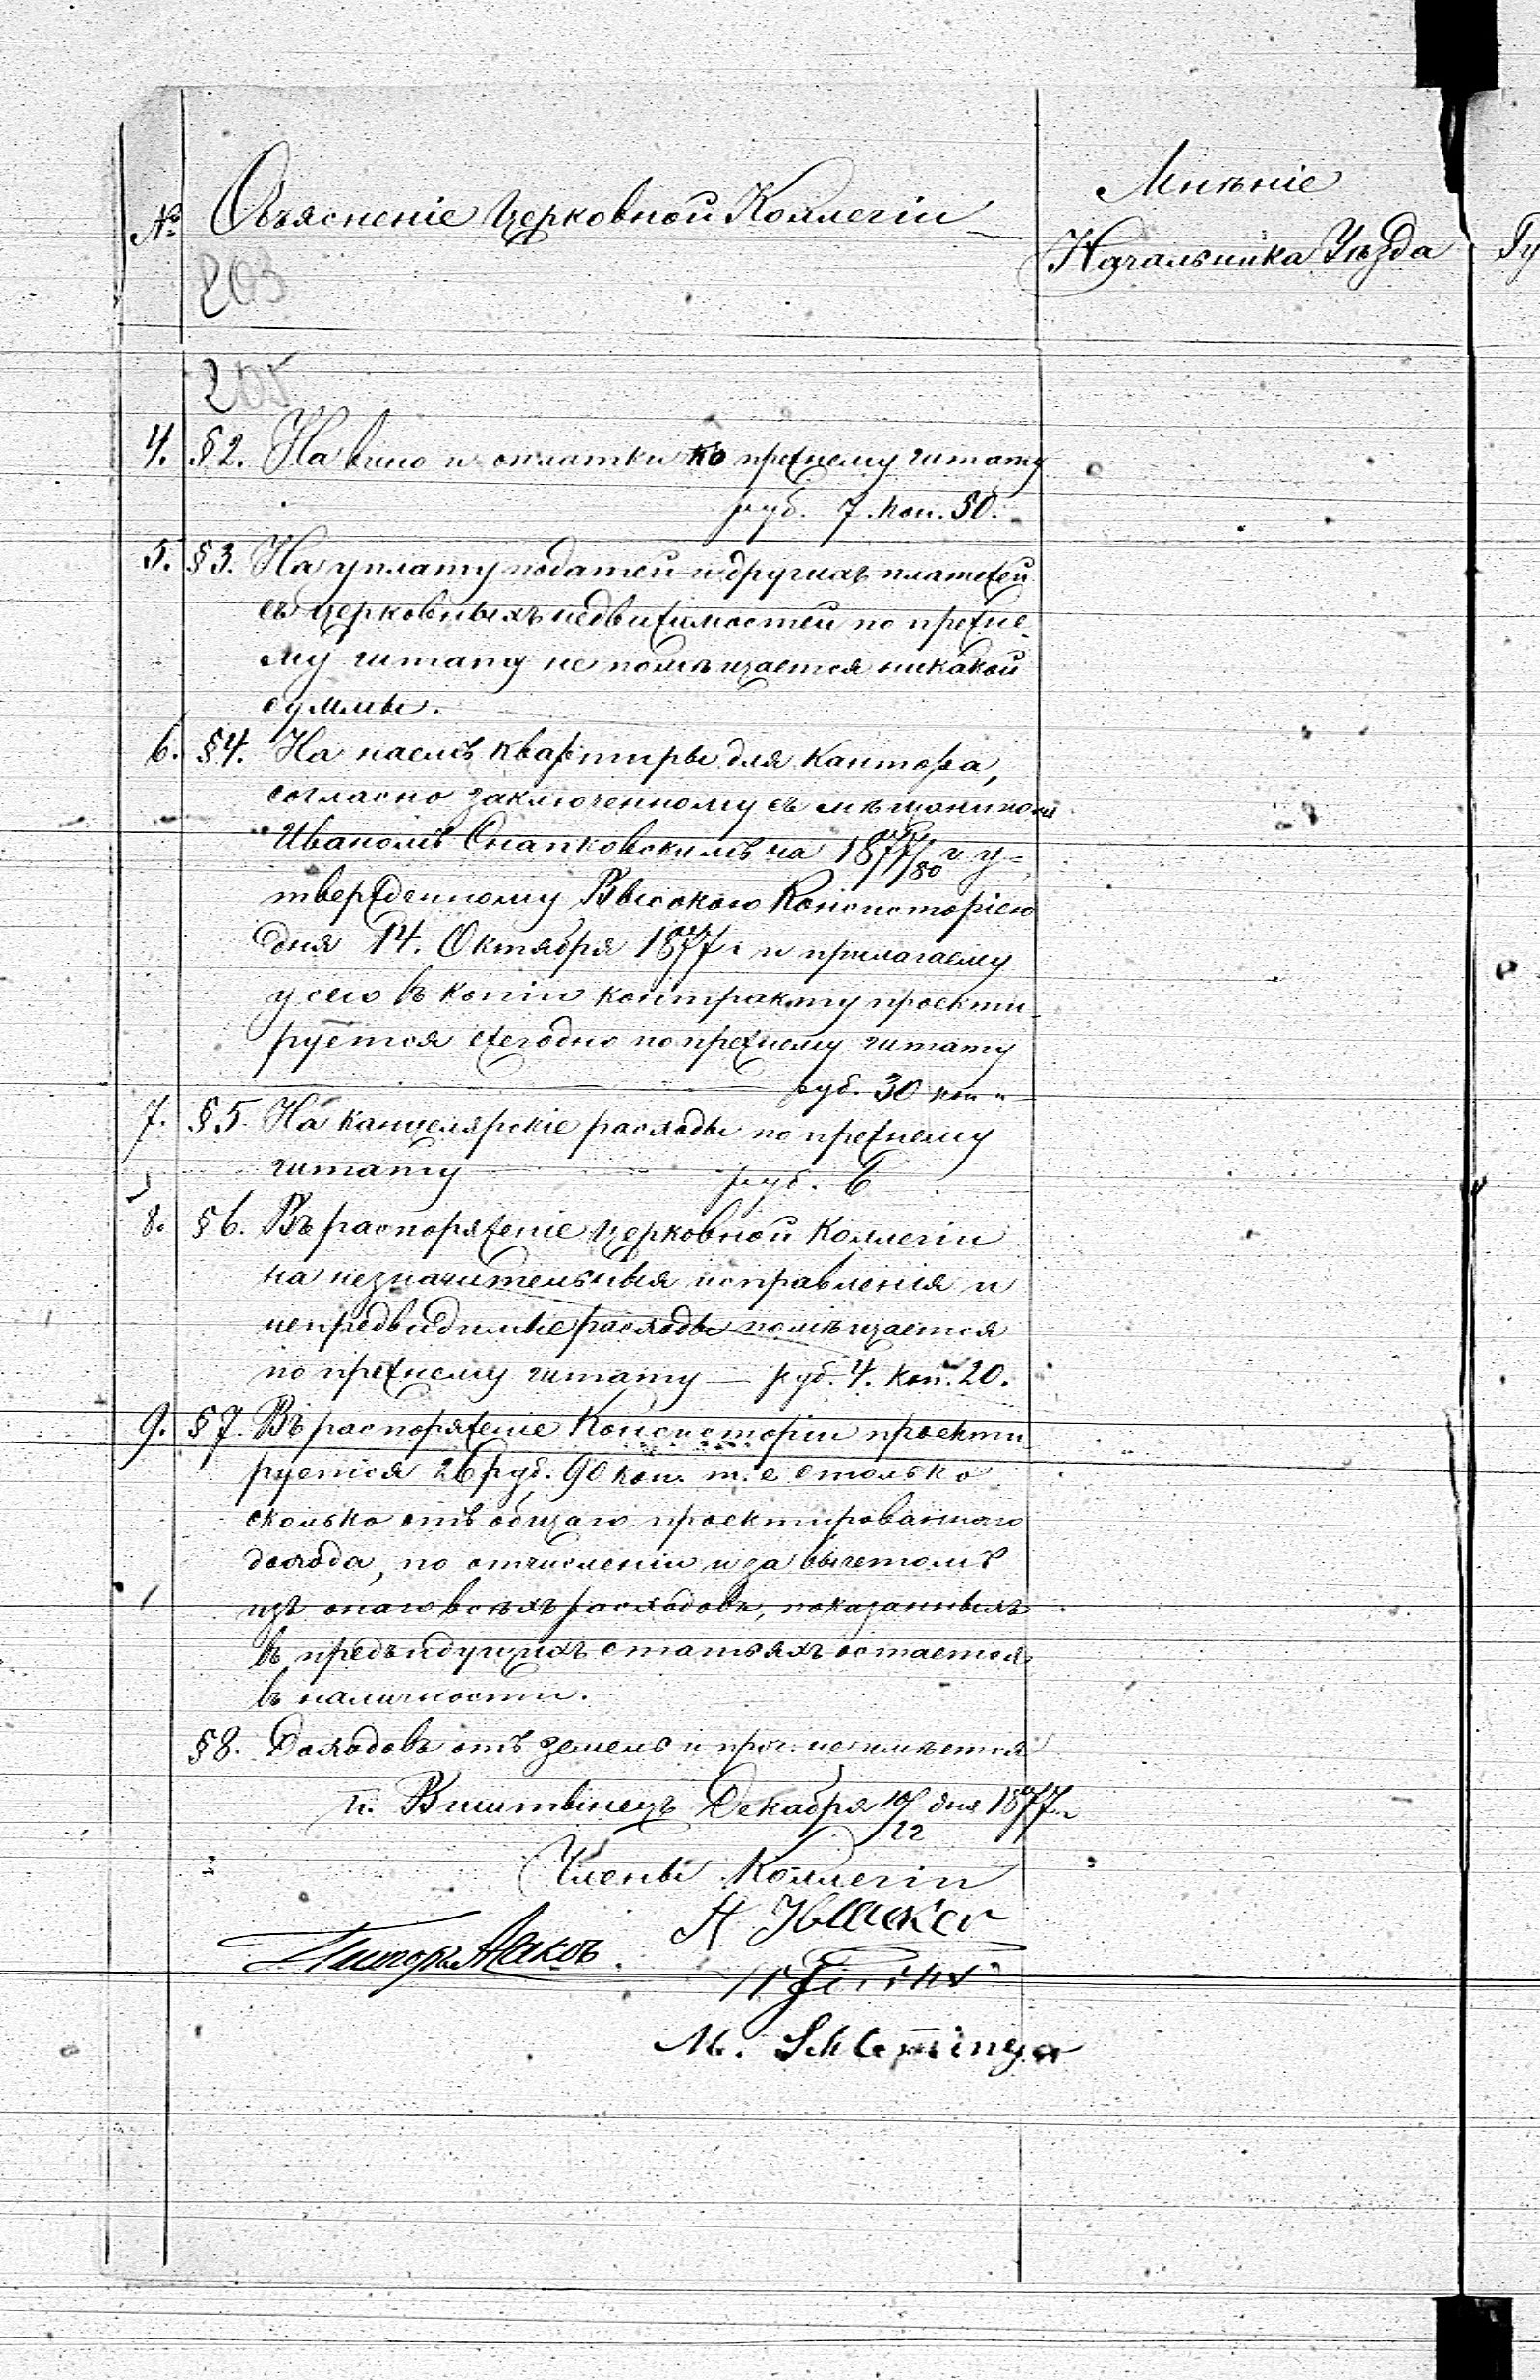 № Объясненіе Церковной Коллегіи
Мнѣніе
Начальника Уѣзда
Гу
203
205
4. §2. На вино и оплатки по прежнему штату
руб. 7. коп. 50.
5. §3. На уплату податей и другихъ платежей
съ церковныхъ недвижимостей по прежне-
му штату не помѣщается никакой
суммы.
6. §4. На наемъ квартиры для Кантора,
согласно заключенному съ мѣщаниномъ
Иваномъ на 1877/80 г. у-
твержденному Высокою Консисторіею
дня 14. Октября 1877 г. и прилагаему
у сего въ копіи контракту проекти-
руется ежегодно по прежнему штату
руб. 30 коп "
7. §5. На канцелярскіе расходы по прежнему
штату руб. 6
8. §6. Въ распоряженіе Церковной Коллегіи
на незначительныя исправленія и
непредвидимые расходы помѣщается
по прежнему штату — руб. 4. коп. 20.
9. §7. Въ распоряженіе Консисторіи проекти-
руется 26 руб. 90 коп. т. е столько
сколько отъ общаго проектированнаго
дохода, по отчисленіи и за вычетомъ
изъ онаго всѣхъ расходовъ, показанныхъ
въ предъидущихъ статьяхъ остается
въ наличности.
§8. Доходовъ отъ земель и проч. не имѣется
п. Виштынецъ Декабря 10/22 дня 1877 г.
Члены Коллегіи
Пасторъ
M. Schlemminger